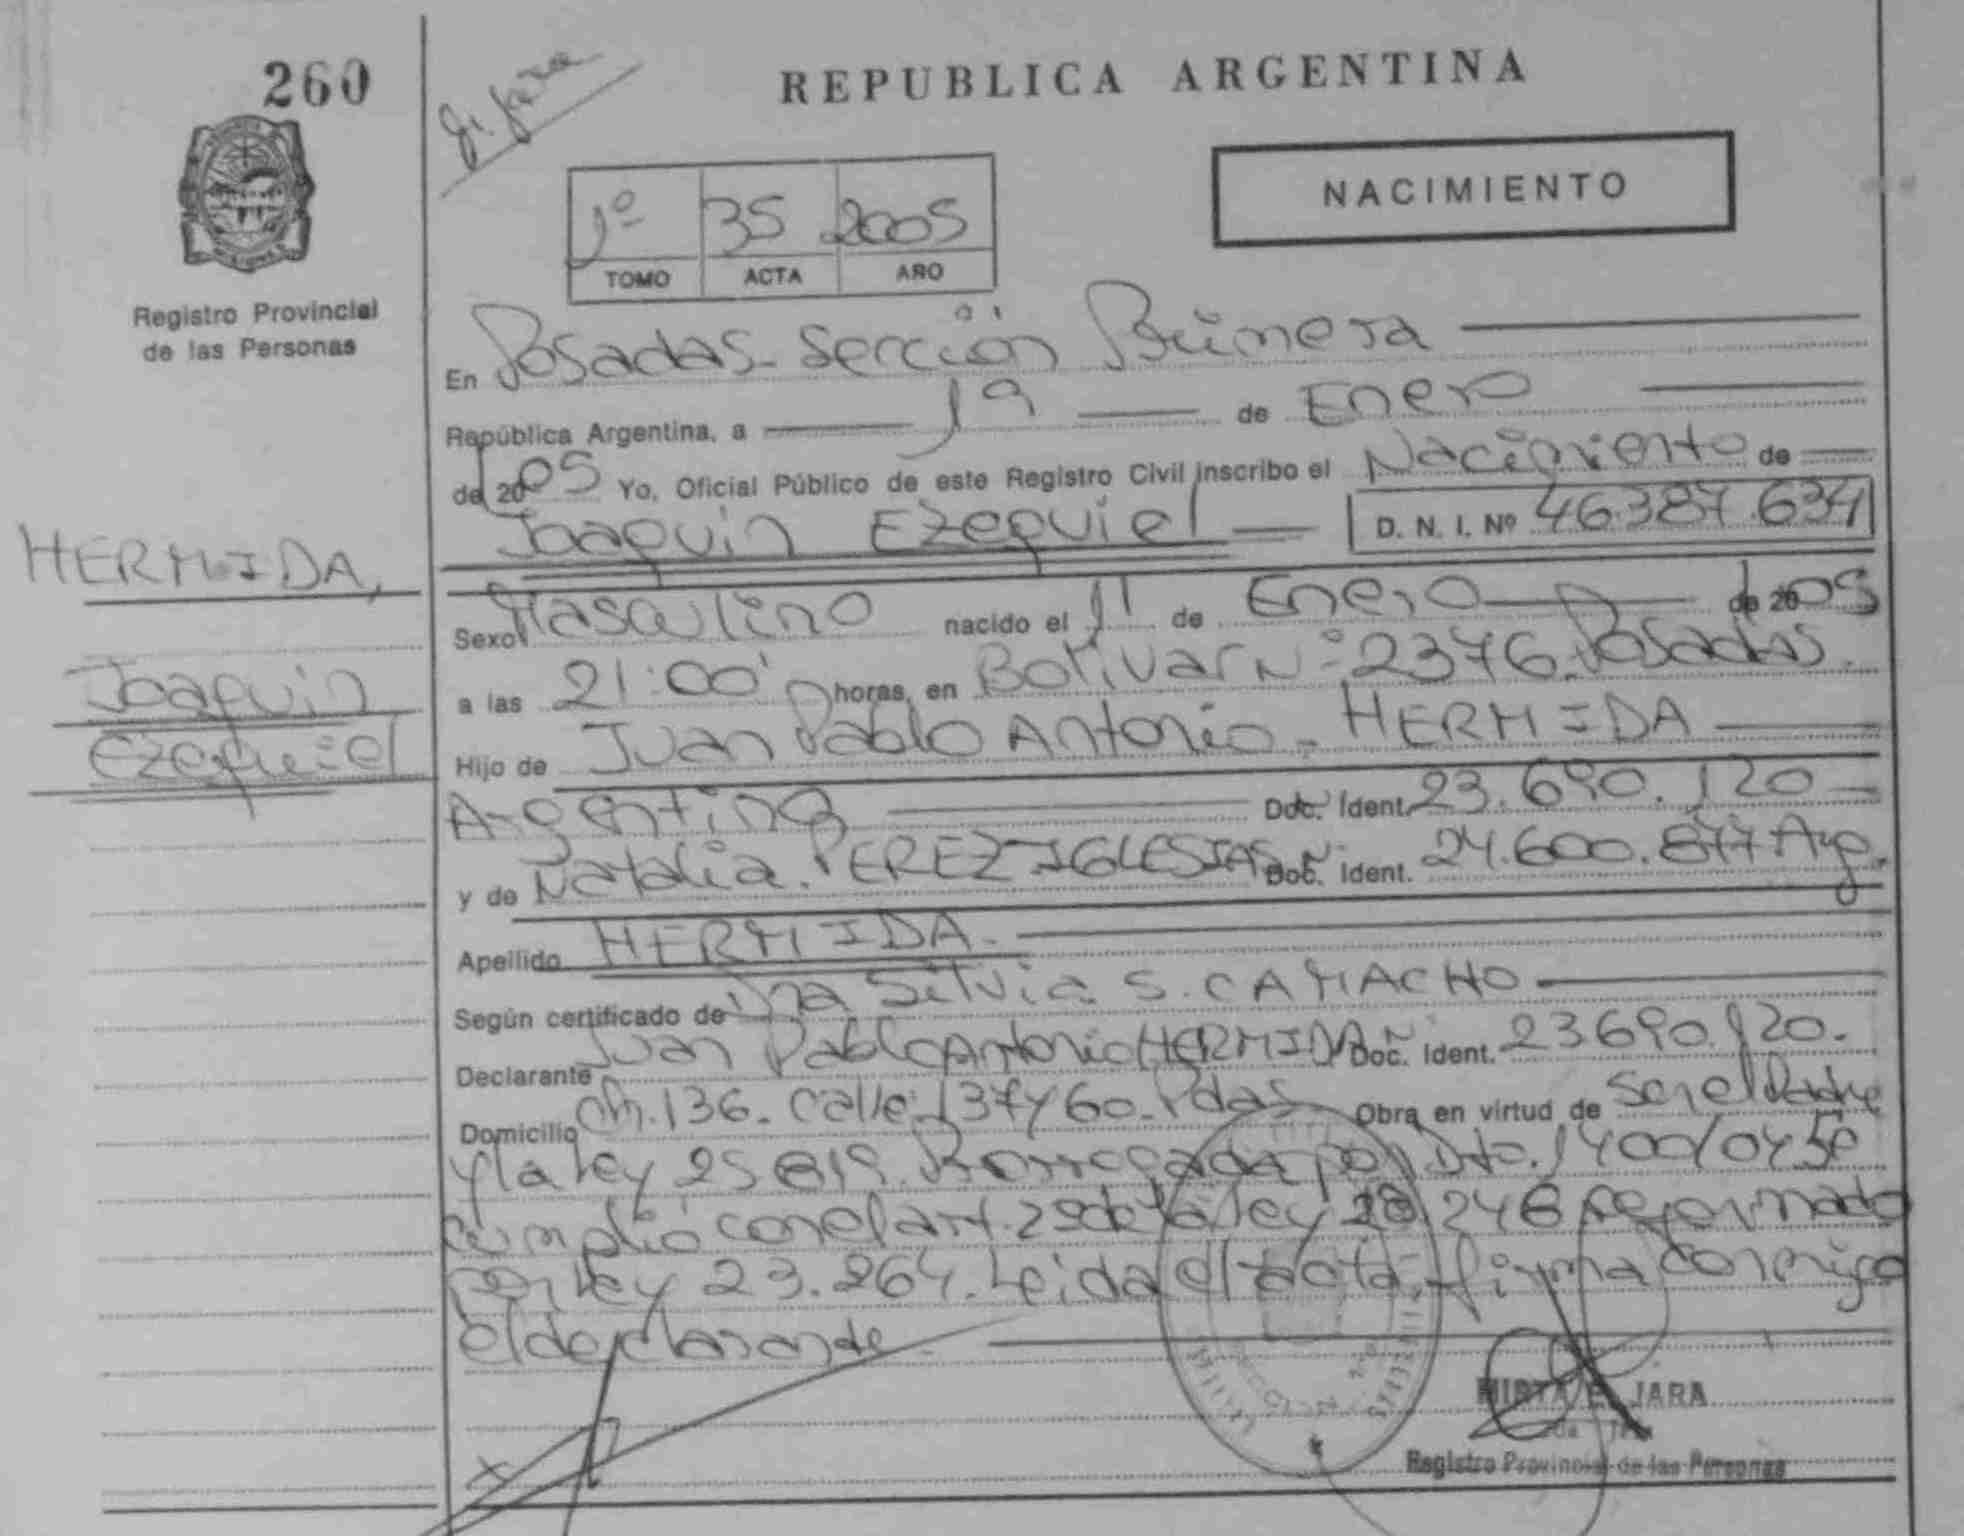 260
REPUBLICA ARGENTINA
NACIMIENTO
1º 35 2005
TOMO ACTA AÑO
Registro Provincial
de las Personas
En Posadas - Sección Primera
República Argentina, a 19 de Enero
de 2005 Yo, Oficial Público de este Registro Civil inscribo el Nacimiento de
Joaquin Ezequiel D. N. I. Nº 46.387.634
HERMIDA,
Joaquin
Ezequiel
Sexo Masculino nacido el 11 de Enero de 2005
a las 21:00' horas, en Bolivar Nº 2376. Posadas.
Hijo de Juan Pablo Antonio - HERMIDA
Argentina Doc. Ident. 23.690.120
y de Natalia. PEREZ IGLESIAS Doc. Ident. 24.600.877 Arg.
Apellido HERMIDA -
Según certificado de Dra Silvia S. CAMACHO
Declarante Juan Pablo Antonio HERMIDA Doc. Ident. 23690.120.
Domicilio Ch. 136. Calle 137 y 60. Pdas Obra en virtud de ser el Padre
y la ley 25819. Prorrogada por Dto. 1400/04 Se
cumplió con el art. 29 de la ley 18.248 reformado
por ley 23.264. Leida el acta, firma conmigo
el declarante.
MIRTA E. JARA
Registro Provincial de las Personas